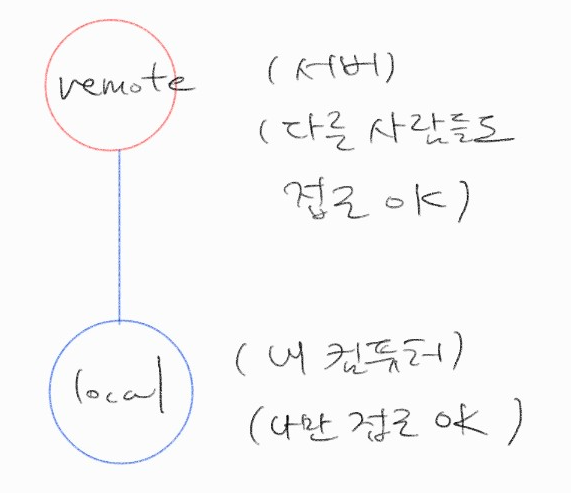 remote
(서버)
(다른 사람들도
접근 OK)
local
(내 컴퓨터)
(나만 접근 OK)